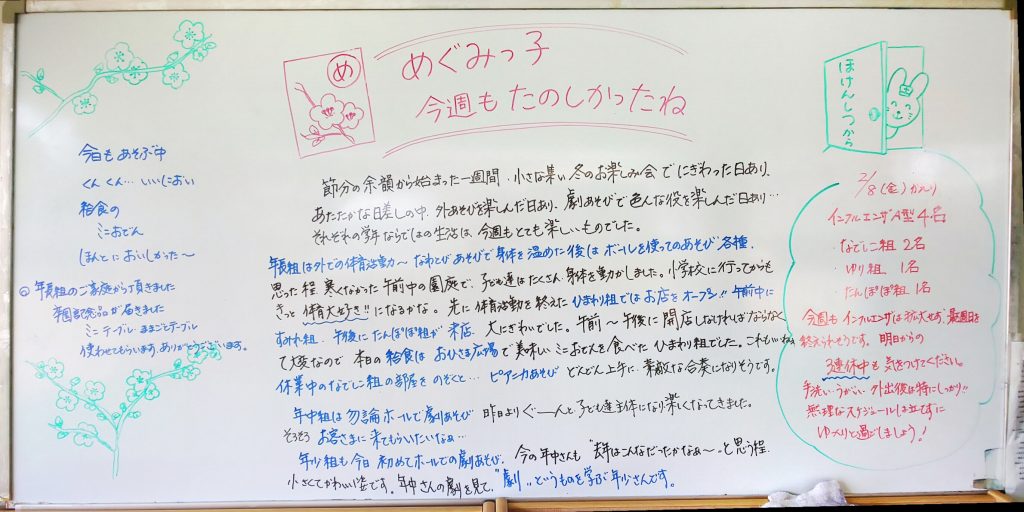 め
めぐみっ子
今週もたのしかったね
今日もあそぶ中
くんくん…いいにおい
給食の
ミニおでん
ほんとにおいしかった〜
◎年長組のご家庭から頂きました
卒園記念品が届きました
ミニテーブル・ままごとテーブル
使わせてもらいます。ありがとうございます。
節分の余韻から始まった一週間・小さな集い 冬のお楽しみ会でにぎわった日あり、
あたたかな日差しの中、外あそびを楽しんだ日あり、劇あそびで色んな役を楽しんだ日あり…
それぞれの学年ならではの生活は、今週もとても楽しいものでした。
年長組は外での体育活動〜なわとびあそびで身体を温めた後はボールを使ってのあそび各種、
思った程 寒くなかった午前中の園庭で、子ども達はたくさん身体を動かしました。小学校に行ってからも
きっと"体育大好き!!"になるかな。先に体育活動を終えたひまわり組ではお店をオープン!!午前中に
すみれ組、午後にたんぽぽ組が来店、大にぎわいでした。午前〜午後に開店しなければならなく
て大変なので本日の給食はおひさま広場で美味しいミニおでんを食べたひまわり組でした。これもいいねぇ
休業中のなでしこ組の部屋をのぞくと… ピアニカあそび どんどん上手に、素敵な合奏になりそうです。
年中組は勿論ホールで劇あそび 昨日よりぐーんと子ども達主体になり楽しくなってきました。
そろそろ お客さまに来てもらいたいなぁ…
年少組も今日 初めてホールでの劇あそび、今の年中さんも"去年はこんなだったかなぁ〜"っと思う程
小さくてかわいい姿です。年中さんの劇を見て、"劇"というものを学ぶ年少さんです。
ほけんしつから
2/8(金)
インフルエンザA型4名
・なでしこ組 2名
・ゆり組 1名
・たんぽぽ組 1名
今週もインフルエンザは拡大せず、最週日を
終えられそうです。明日からの
3連休中も気をつけてください。
手洗い・うがい・外出後は特にしっかり!!
無理なスケジュールは立てずに
ゆっくりと過ごしましょう!